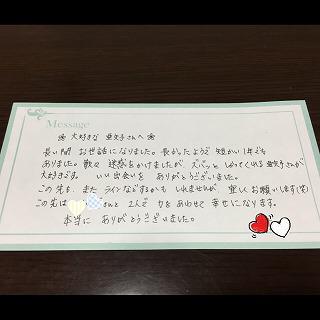 Message
❀ 大好きな 亜矢子さんへ ❀
長い間 お世話になりました。長かったようで 短かい1年でも
ありました。散々 迷惑をかけましたが、ズバッと しかってくれる 亜矢子さんが
大好きです。 いい出会いを ありがとうございました。
この先も、また ラインなどするかも しれませんが 宜しくお願いします(笑)
この先は さんと 2人で 力をあわせて 幸せになります。
本当に ありがとうございました。